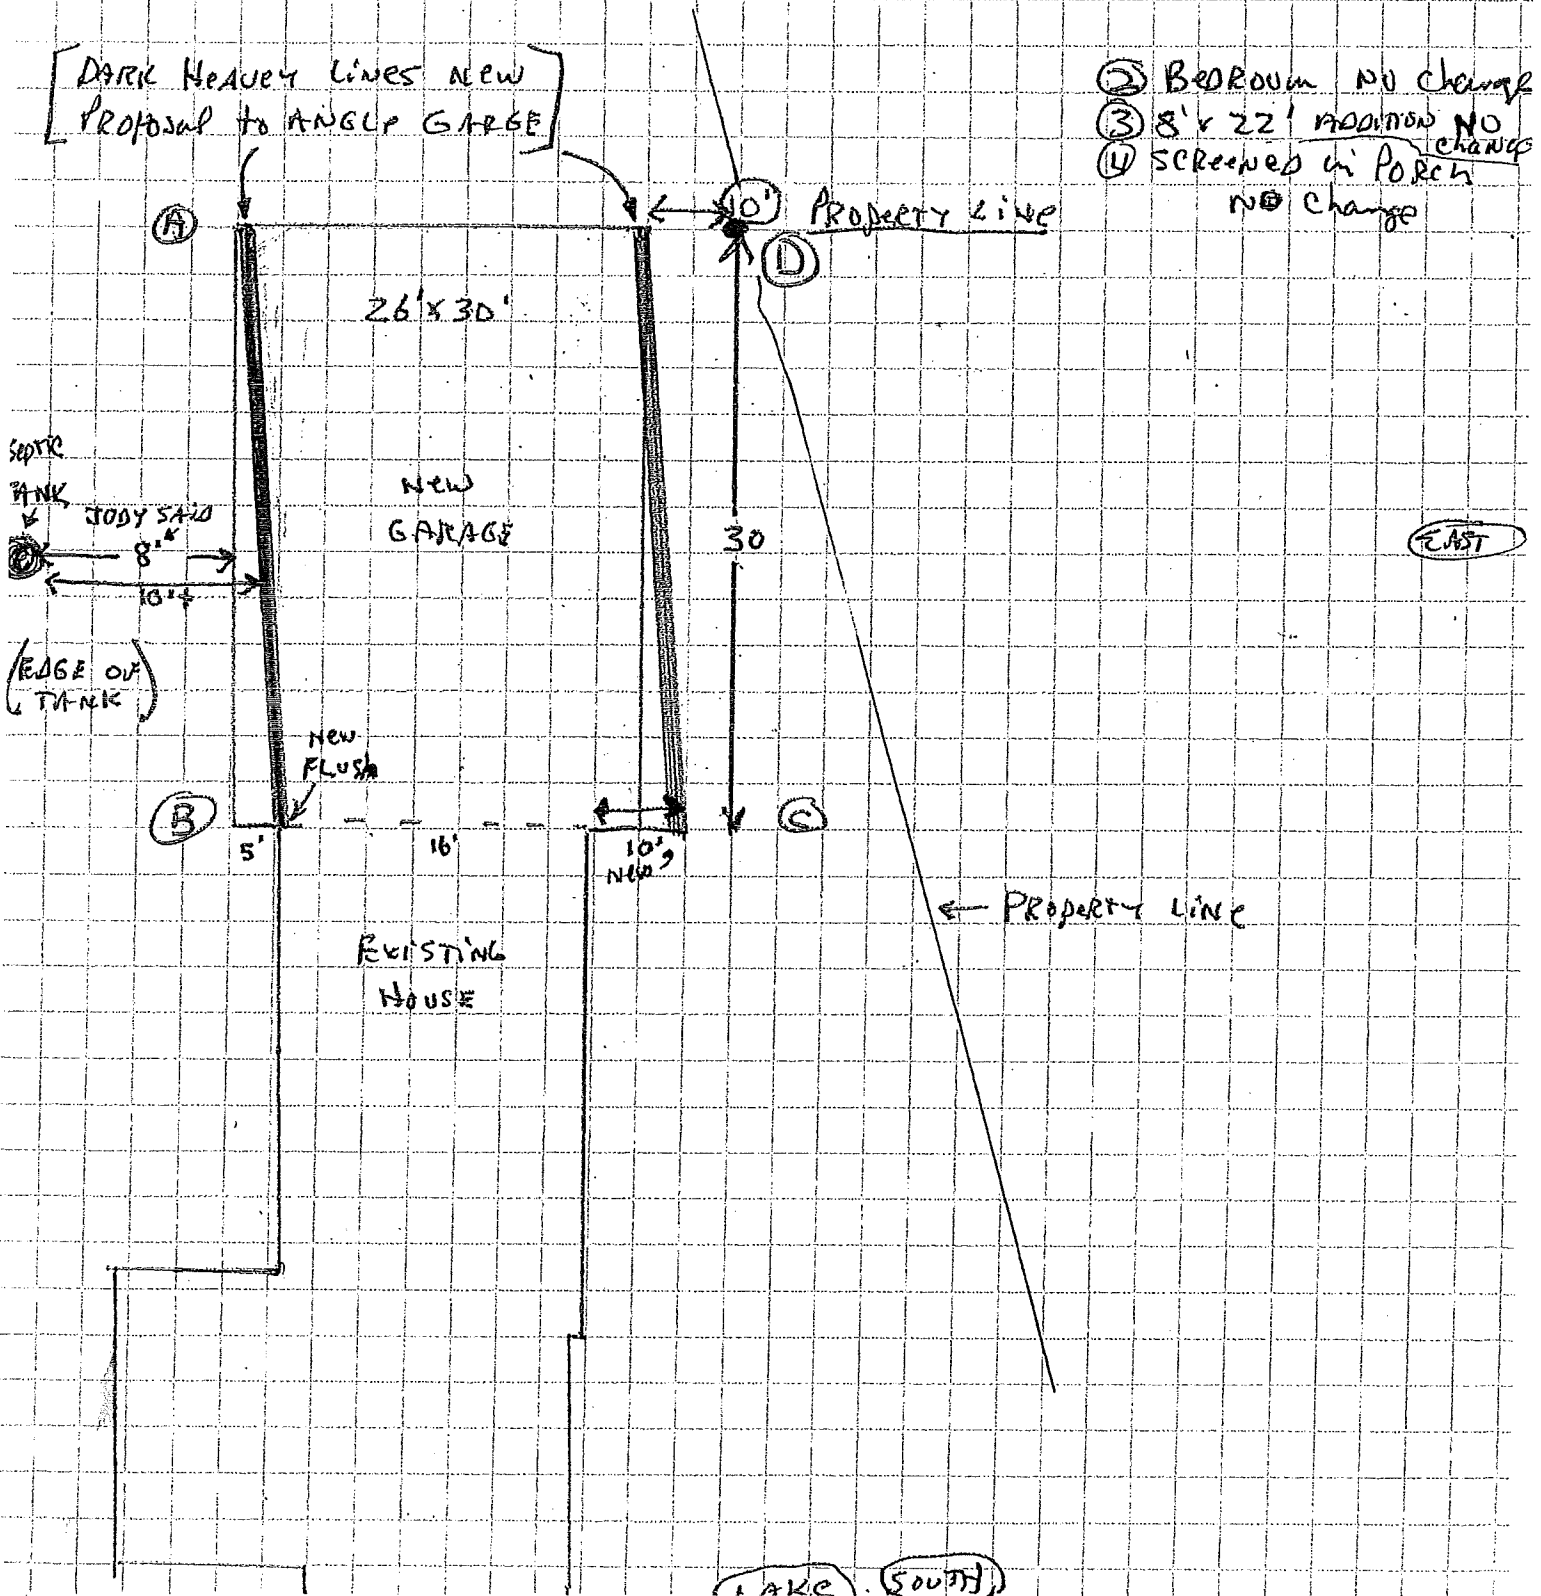 DARK HEAVEY LINES NEW
PROPOSAL to ANGLE GARGE
② BEDROOM NO Change
③ 8' x 22' ADDITION NO change
④ SCREENED in PORCH
NO Change
A
10'
PROPERTY LINE
D
26' x 30'
SEPTIC
TANK
JODY SAID
8'
10'±
NEW
GARAGE
30
EAST
(EDGE OF
TANK)
NEW
FLUSH
B
C
5'
16'
10'
NEW
← PROPERTY LINE
EXISTING
HOUSE
LAKE
SOUTH